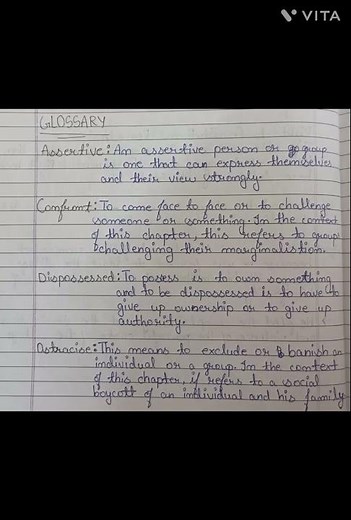 VITA
GLOSSARY
Assertive: An assertive person or group
is one that can express themselves
and their view strongly.
Confront: To come face to face or to challenge
someone or something. In the context
of this chapter, this refers to groups
challenging their marginalistion.
Dispossessed: To posess is to own something
and to be dispossessed is to have to
give up ownership or to give up
authority.
Ostracise: This means to exclude or banish an
individual or a group. In the context
of this chapter, it refers to a social
boycott of an individual and his family